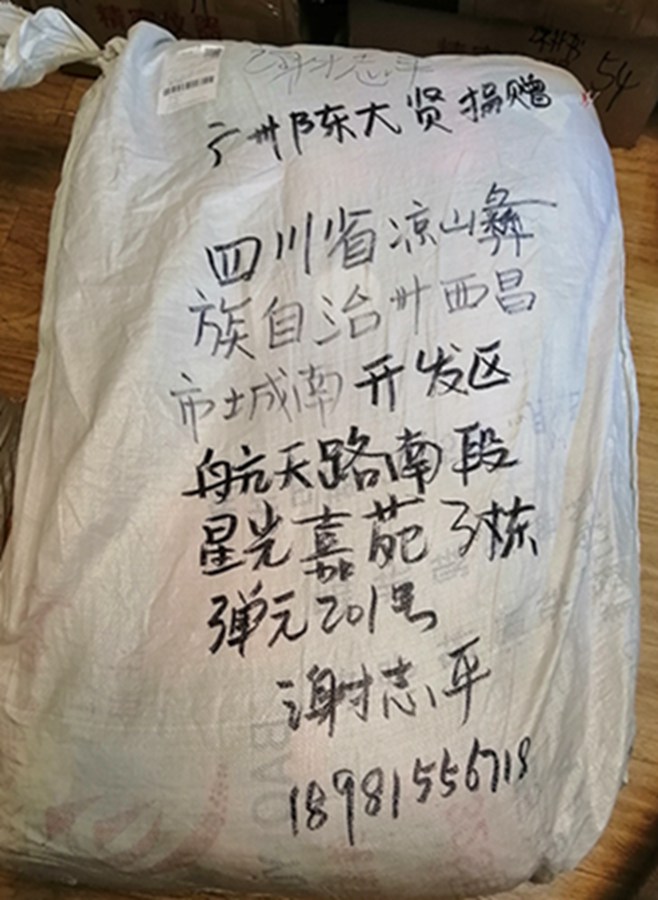 谢志平
广州陈大贤捐赠
四川省凉山彝
族自治州西昌
市城南开发区
航天路南段
星光嘉苑3栋
3单元201号
谢志平
18981556718
54